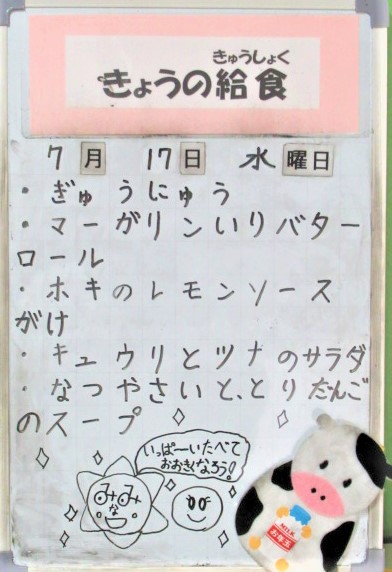 きゅうしょく
きょうの給食
7月 17日 水曜日
・ぎゅうにゅう
・マーガリンいりバター
ロール
・ホキのレモンソース
がけ
・キュウリとツナのサラダ
・なつやさいと、とりだんご
のスープ
いっぱーいたべて
おおきくなろう!
みなみ
MILK
お年玉